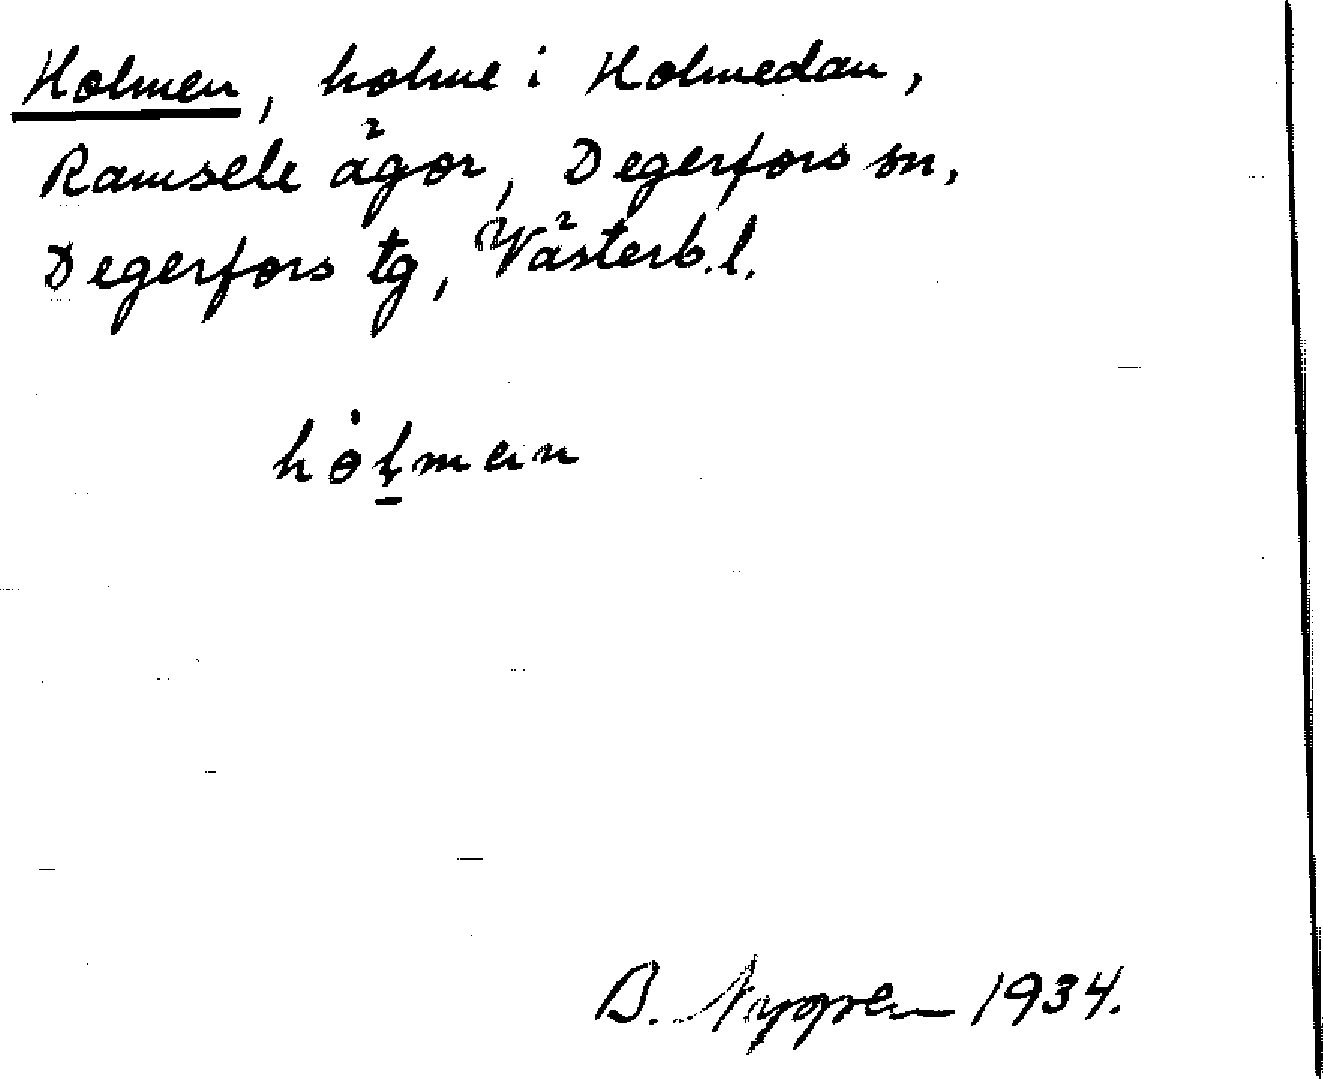 Holmen, holme i Holmedan,
Ramsele ägor, Degerfors sn,
Degerfors tg, Västerb.l.
hȯl̠mɛn
B. Nygren 1934.